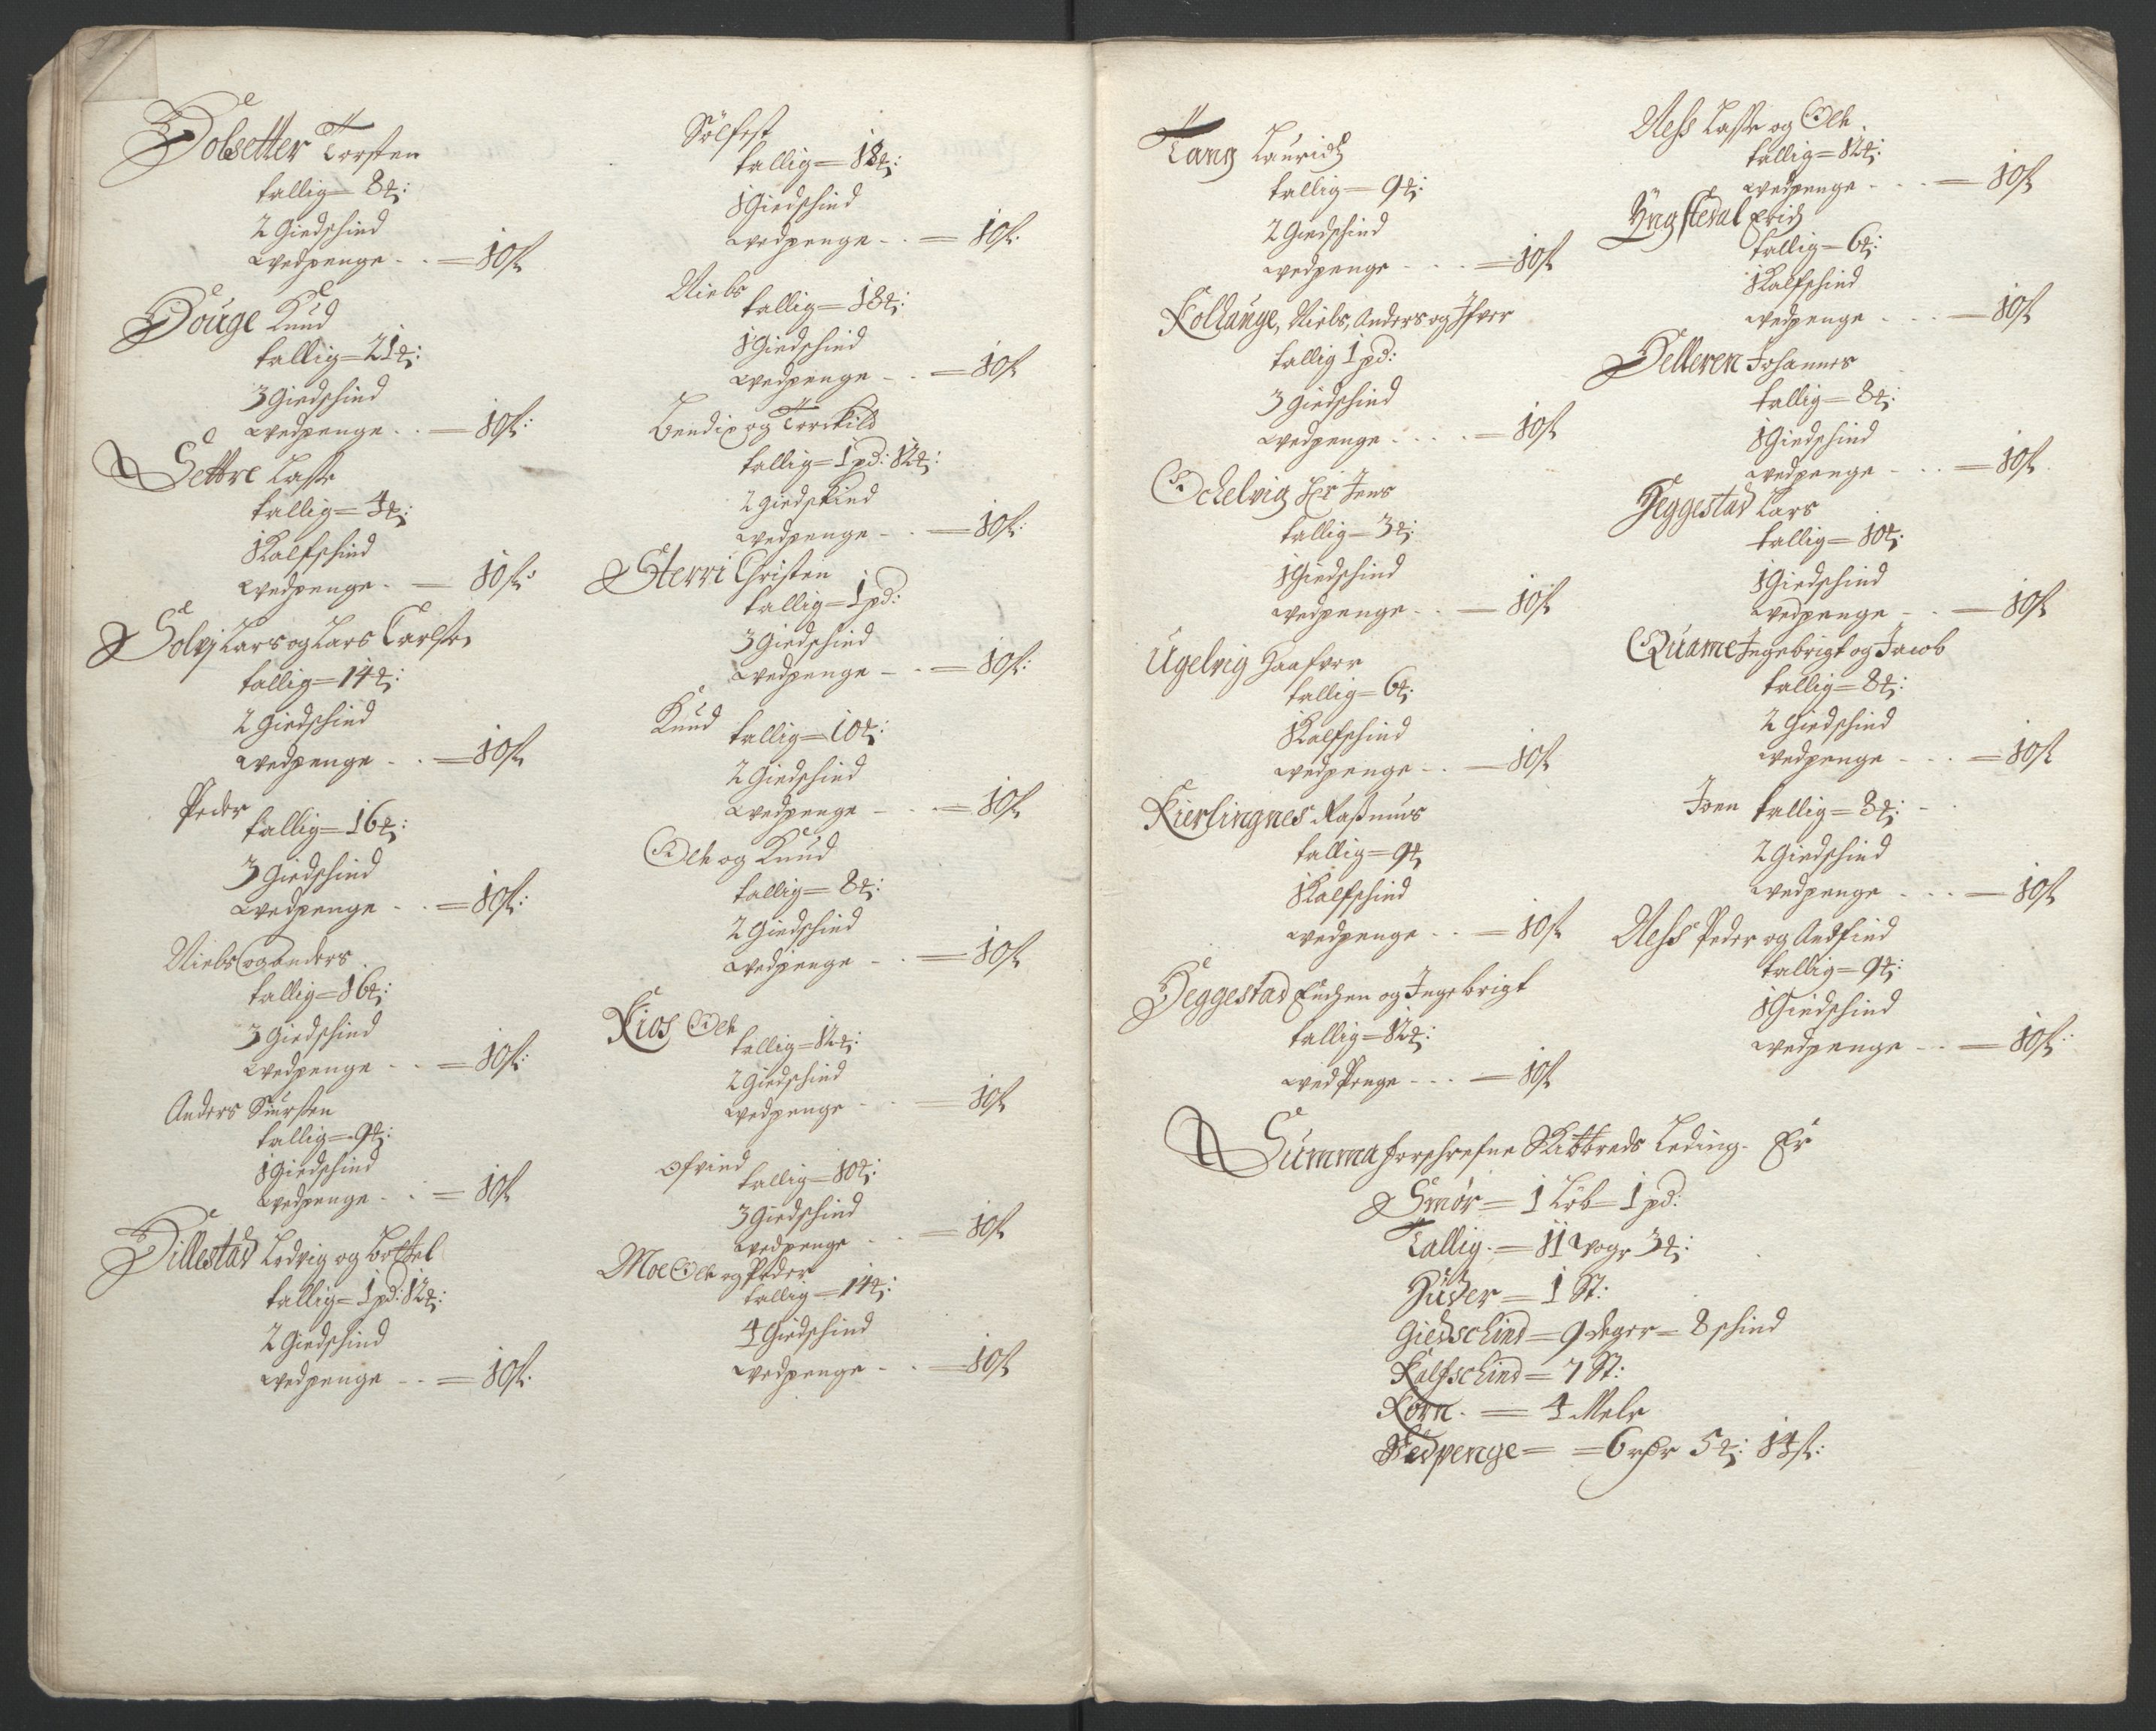 Dolsetter Torsten
tallig = 8 ℔:
2 Giedschind
wedpenge - . = 10 ß
Douge Knud
tallig = 21 ℔:
3 Giedschind
wedpenge . . = 10 ß:
Settre Lasse
tallig = 4 ℔:
1 Kalfschind
wedpenge . = 10 ß:
Solvj Lars og Lars Carlsen
tallig = 14 ℔:
2 Giedschind
wedpenge - . = 10 ß
Peder
tallig = 16 ℔:
3 Giedschind
wedpenge - . = 10 ß:
Niels og anders
tallig = 16 ℔:
3 Giedschind
wedpenge - . = 10 ß:
Anders Siursten
tallig = 9 ℔:
1 Giedschind
wedpenge - . = 10 ß
Dillestad Ledvig og Bottel
tallig = 1 pd: 12 ℔:
2 Giedschind
wedpenge - - = 10 ß:
Sölfest
tallig = 18 ℔:
1 Giedschind
wedpenge - . = 10 ß:
Niels
tallig = 18 ℔:
1 Giedschind
wedpenge - . = 10 ß
Bendix og Torckild
tallig = 1 pd: 12 ℔:
2 giedskind
wedpenge - . = 10 ß:
Sterri Christen
tallig = 1 pd:
3 Giedschind
wedpenge - . = 10 ß:
Knud
tallig = 10 ℔:
2 Giedschind
wedpenge - . = 10 ß
Ole og Knud
tallig = 8 ℔:
2 Giedschind
wedpenge - . = 10 ß
Kios Ole
tallig = 12 ℔:
2 Giedschind
wedpenge - . = 10 ß
Ofvind
tallig = 10 ℔:
3 Giedschind
wedpenge . . = 10 ß
Moe Ole og Peder
tallig = 14 ℔:
4 Giedschind
wedpenge - . = 10 ß
Tang Lauridz
tallig = 9 ℔:
2 Giedschind
wedpenge - . . = 10 ß
Kolhauge, Niels, Anders og Ifver
tallig 1 pd:
3 giedschind
wedpenge . . . . = 10 ß
Ochelvig Hr Jens
tallig = 3 ℔:
1 Giedschind
wedpenge . . = 10 ß
Ugelvig Haafvor
tallig = 6 ℔:
1 Kalfschind
wedpenge - . = 10 ß
Kierlingnes Rasmus
tallig = 9 ℔
1 Kalfschind
wedpenge . . = 10 ß
Heggestad og Ingebrigt
tallig = 12 ℔:
wed Penge - . . = 10 ß
Ness Lasse og Ole.
tallig = 12 ℔:
wedpenge . . . = 10 ß
Yngstedal Erich
tallig = 6 ℔:
1 Kalfschind
wedpenge . . . = 10 ß
Helleren Johannes
tallig = 8 ℔:
1 Giedschind
wedpenge - . . = 10 ß.
Heggestad Lars
tallig = 10 ℔:
1 Giedschind
wedpenge - . . = 10 ß
Quame Ingebrigt og Jacob
tallig = 8 ℔:
2 Giedschind
wedpenge - . . = 10 ß
Joen tallig = 8 ℔: -
2 Giedschind
wedpenge . . . = 10 ß
Ness Peder og Andfind
tallig = 9 ℔:
1 Giedschind
wedpenge - . = 10 ß:
Summa forschrefne Skibbreds Leding. Er
Smör = 1 Löb = 1 pd:
Tallig. = 11 woger 3 ℔:
Huder = 1 St:
Giedschind = 9 deger = 8 schind
Kalfschind = 7 St:
Korn. = 4 Mele
Vedpenge = = 6 rdr 5 ℔: 14 ß: